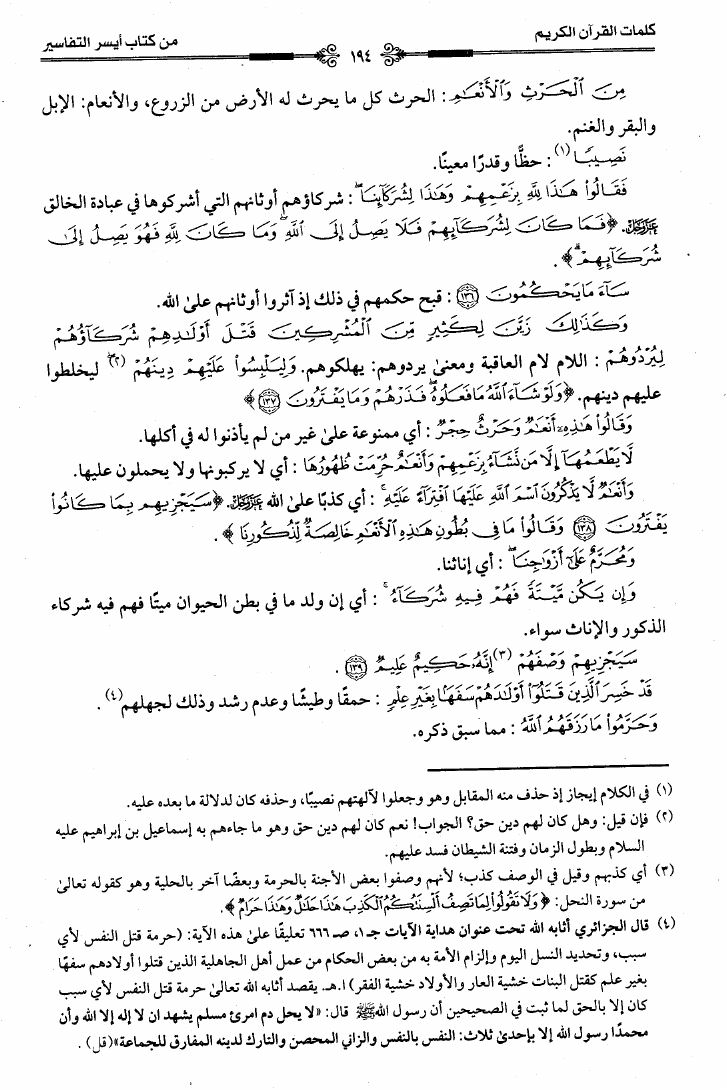 كلمات القرآن الكريم
١٩٤
من كتاب أيسر التفاسير
مِنَ الْحَرْثِ وَالْأَنْعَامِ : الحرث كل ما يحرث له الأرض من الزروع، والأنعام: الإبل
والبقر والغنم.
نَصِيبًا (١) : حظًّا وقدرًا معينًا.
فَقَالُوا هَذَا لِلَّهِ بِزَعْمِهِمْ وَهَذَا لِشُرَكَائِنَا : شركاؤهم أوثانهم التي أشركوها في عبادة الخالق
عَزَّوَجَلَّ. ﴿فَمَا كَانَ لِشُرَكَائِهِمْ فَلَا يَصِلُ إِلَى اللَّهِ وَمَا كَانَ لِلَّهِ فَهُوَ يَصِلُ إِلَى
شُرَكَائِهِمْ﴾.
سَاءَ مَا يَحْكُمُونَ ١٣٦ : قبح حكمهم في ذلك إذ آثروا أوثانهم على الله.
وَكَذَلِكَ زَيَّنَ لِكَثِيرٍ مِنَ الْمُشْرِكِينَ قَتْلَ أَوْلَادِهِمْ شُرَكَاؤُهُمْ
لِيُرْدُوهُمْ : اللام لام العاقبة ومعنى يردوهم: يهلكوهم. وَلِيَلْبِسُوا عَلَيْهِمْ دِينَهُمْ (٢) ليخلطوا
عليهم دينهم. ﴿وَلَوْ شَاءَ اللَّهُ مَا فَعَلُوهُ فَذَرْهُمْ وَمَا يَفْتَرُونَ ١٣٧﴾
وَقَالُوا هَذِهِ أَنْعَامٌ وَحَرْثٌ حِجْرٌ : أي ممنوعة على غير من لم يأذنوا له في أكلها.
لَا يَطْعَمُهَا إِلَّا مَنْ نَشَاءُ بِزَعْمِهِمْ وَأَنْعَامٌ حُرِّمَتْ ظُهُورُهَا : أي لا يركبونها ولا يحملون عليها.
وَأَنْعَامٌ لَا يَذْكُرُونَ اسْمَ اللَّهِ عَلَيْهَا افْتِرَاءً عَلَيْهِ : أي كذبًا على الله عَزَّوَجَلَّ. ﴿سَيَجْزِيهِمْ بِمَا كَانُوا
يَفْتَرُونَ ١٣٨ وَقَالُوا مَا فِي بُطُونِ هَذِهِ الْأَنْعَامِ خَالِصَةٌ لِذُكُورِنَا﴾.
وَمُحَرَّمٌ عَلَى أَزْوَاجِنَا : أي إناثنا.
وَإِنْ يَكُنْ مَيْتَةً فَهُمْ فِيهِ شُرَكَاءُ : أي إن ولد ما في بطن الحيوان ميتًا فهم فيه شركاء
الذكور والإناث سواء.
سَيَجْزِيهِمْ وَصْفَهُمْ (٣) إِنَّهُ حَكِيمٌ عَلِيمٌ ١٣٩ .
قَدْ خَسِرَ الَّذِينَ قَتَلُوا أَوْلَادَهُمْ سَفَهًا بِغَيْرِ عِلْمٍ : حمقًا وطيشًا وعدم رشد وذلك لجهلهم (٤) .
وَحَرَّمُوا مَا رَزَقَهُمُ اللَّهُ : مما سبق ذكره.
(١) في الكلام إيجاز إذ حذف منه المقابل وهو وجعلوا لآلهتهم نصيبًا، وحذفه كان لدلالة ما بعده عليه.
(٢) فإن قيل: وهل كان لهم دين حق؟ الجواب! نعم كان لهم دين حق وهو ما جاءهم به إسماعيل بن إبراهيم عليه
السلام وبطول الزمان وفتنة الشيطان فسد عليهم.
(٣) أي كذبهم وقيل في الوصف كذب؛ لأنهم وصفوا بعض الأجنة بالحرمة وبعضًا آخر بالحلية وهو كقوله تعالى
من سورة النحل: ﴿وَلَا تَقُولُوا لِمَا تَصِفُ أَلْسِنَتُكُمُ الْكَذِبَ هَذَا حَلَالٌ وَهَذَا حَرَامٌ﴾.
(٤) قال الجزائري أثابه الله تحت عنوان هداية الآيات جـ١، صـ ٦٦٦ تعليقًا على هذه الآية: (حرمة قتل النفس لأي
سبب، وتحديد النسل اليوم وإلزام الأمة به من بعض الحكام من عمل أهل الجاهلية الذين قتلوا أولادهم سفهًا
بغير علم كقتل البنات خشية العار والأولاد خشية الفقر) ا.هـ. يقصد أثابه الله تعالى حرمة قتل النفس لأي سبب
كان إلا بالحق لما ثبت في الصحيحين أن رسول الله ﷺ قال: «لا يحل دم امرئ مسلم يشهد ان لا إله إلا الله وأن
محمدًا رسول الله إلا بإحدى ثلاث: النفس بالنفس والزاني المحصن والتارك لدينه المفارق للجماعة» (قل) .